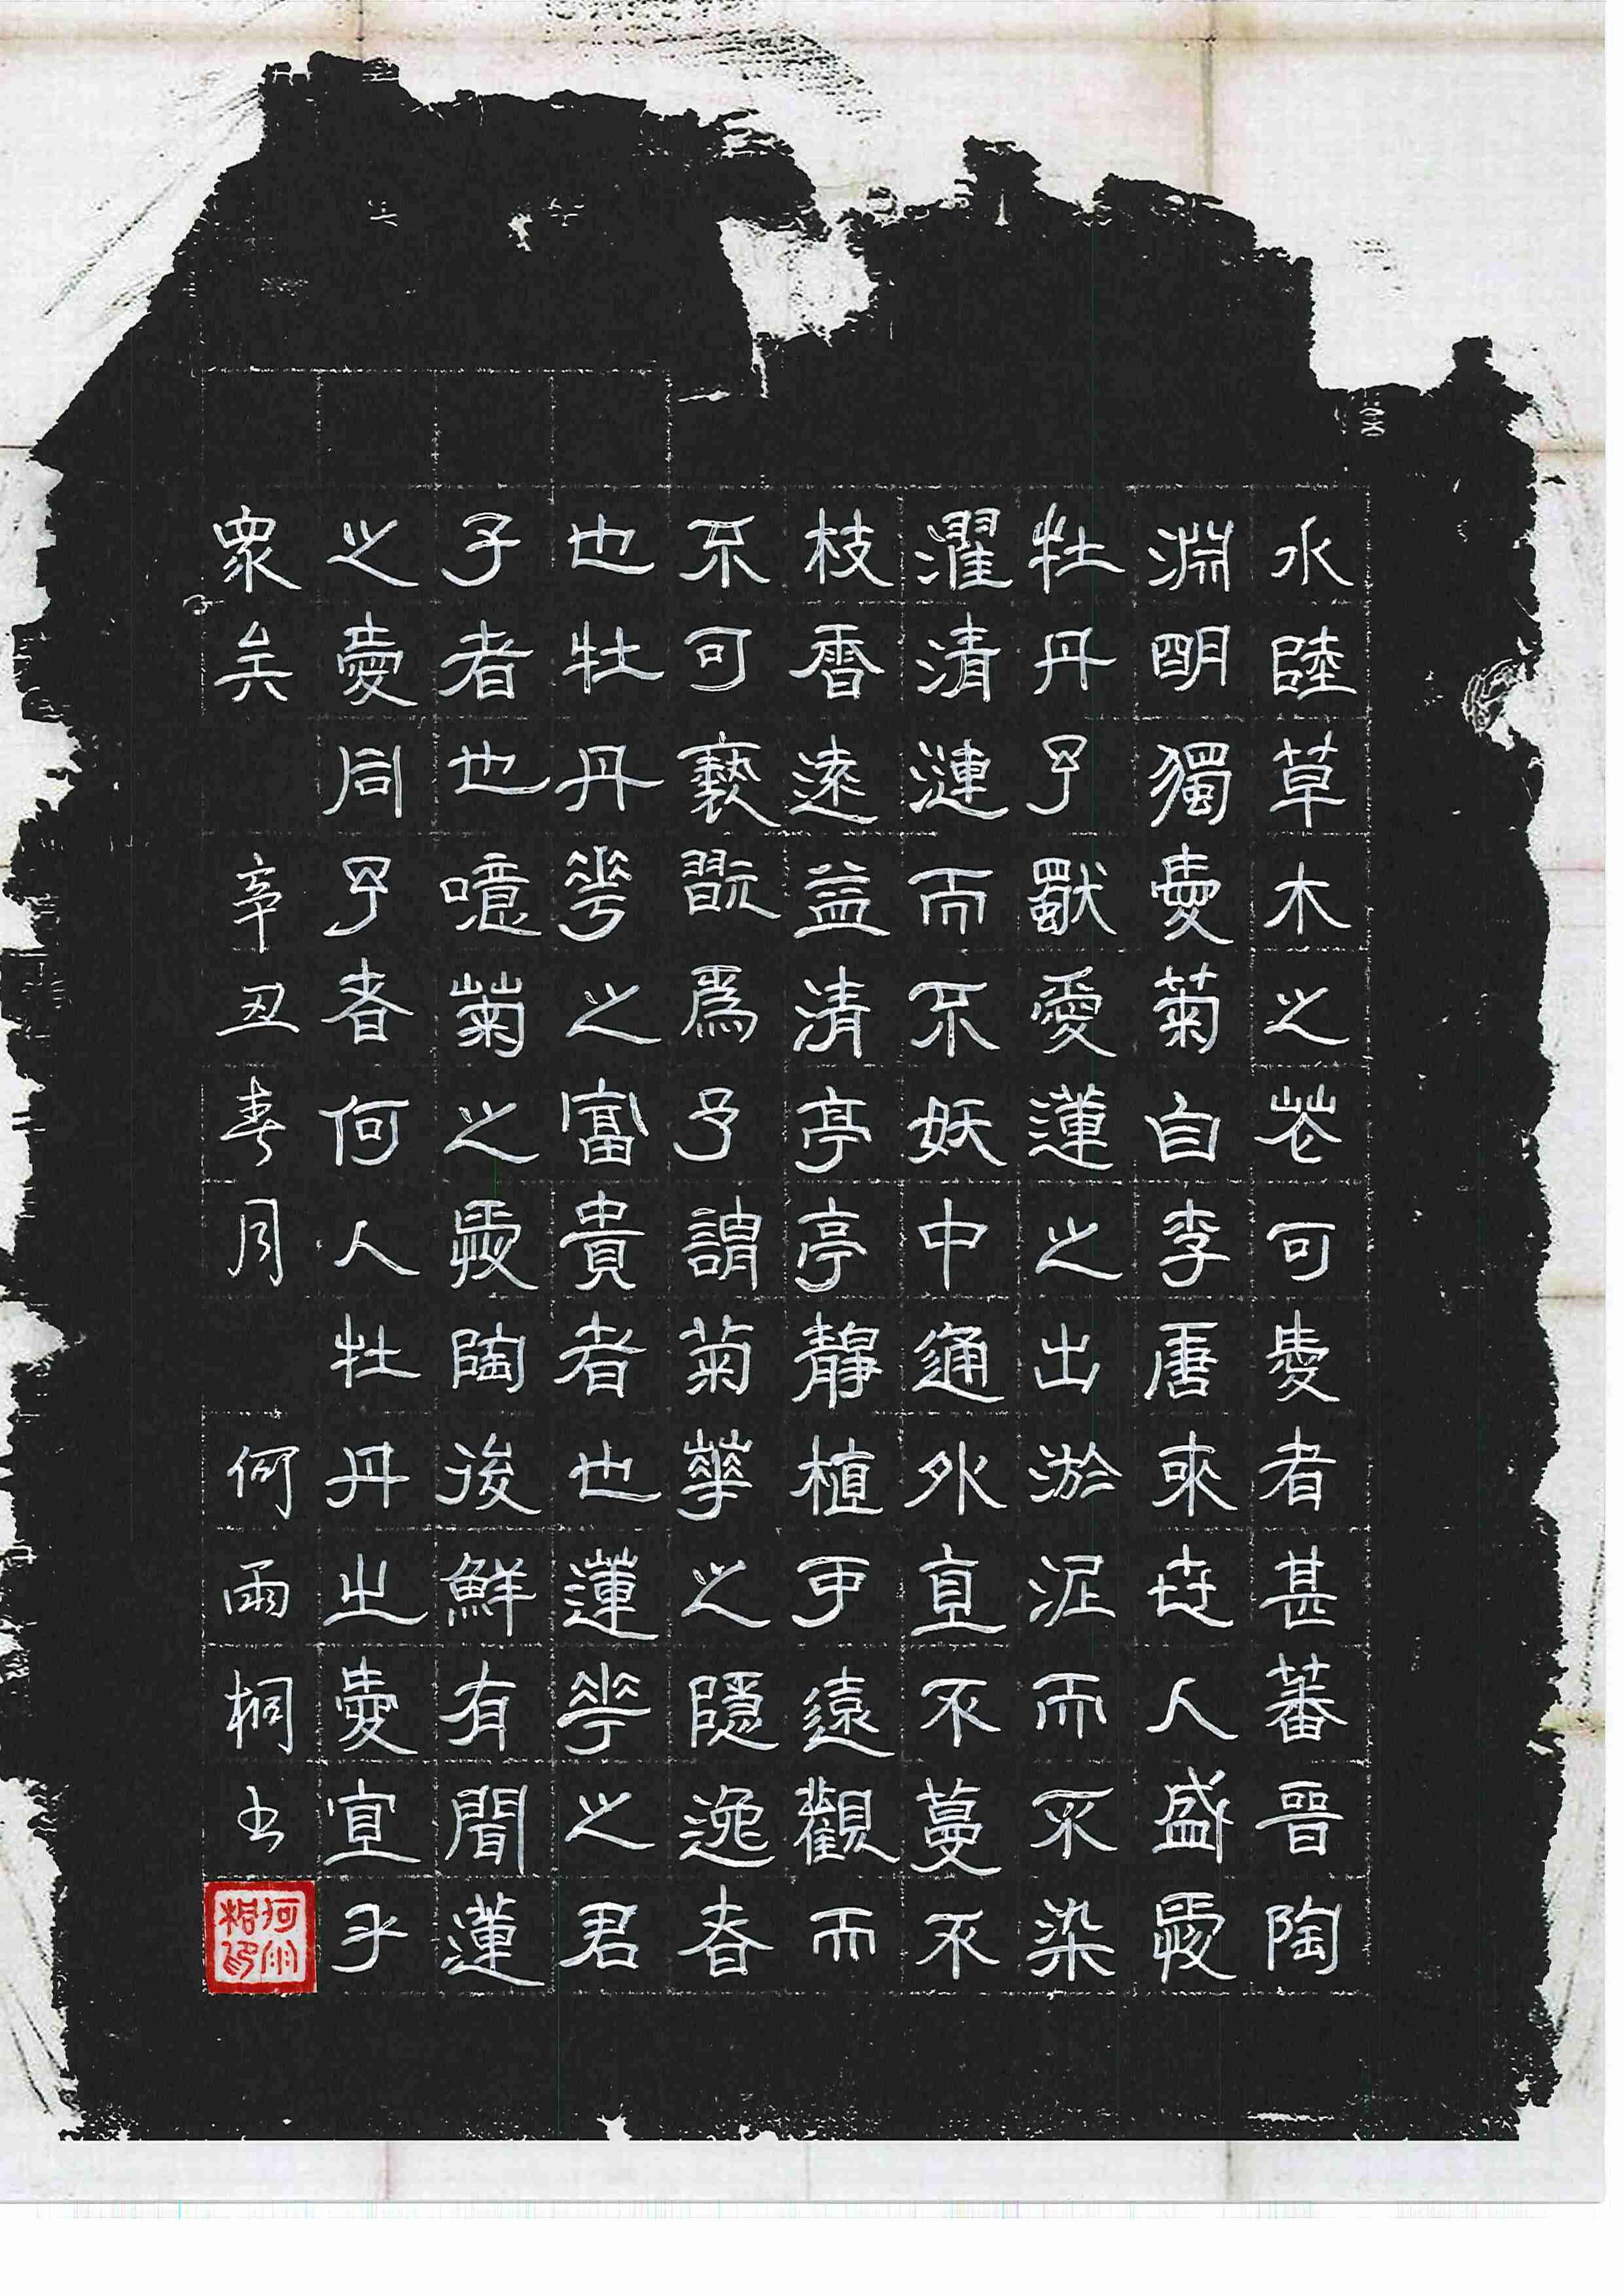 水陸草木之花可愛者甚蕃晉陶
淵明獨愛菊自李唐來世人盛愛
牡丹予獨愛蓮之出淤泥而不染
濯清漣而不妖中通外直不蔓不
枝香遠益清亭亭靜植可遠觀而
不可褻翫爲予謂菊華之隱逸者
也牡丹華之富貴者也蓮華之君
子者也噫菊之愛陶後鮮有聞蓮
之愛同予者何人牡丹之愛宜乎
眾矣 辛丑春月 何雨桐书
何雨桐印